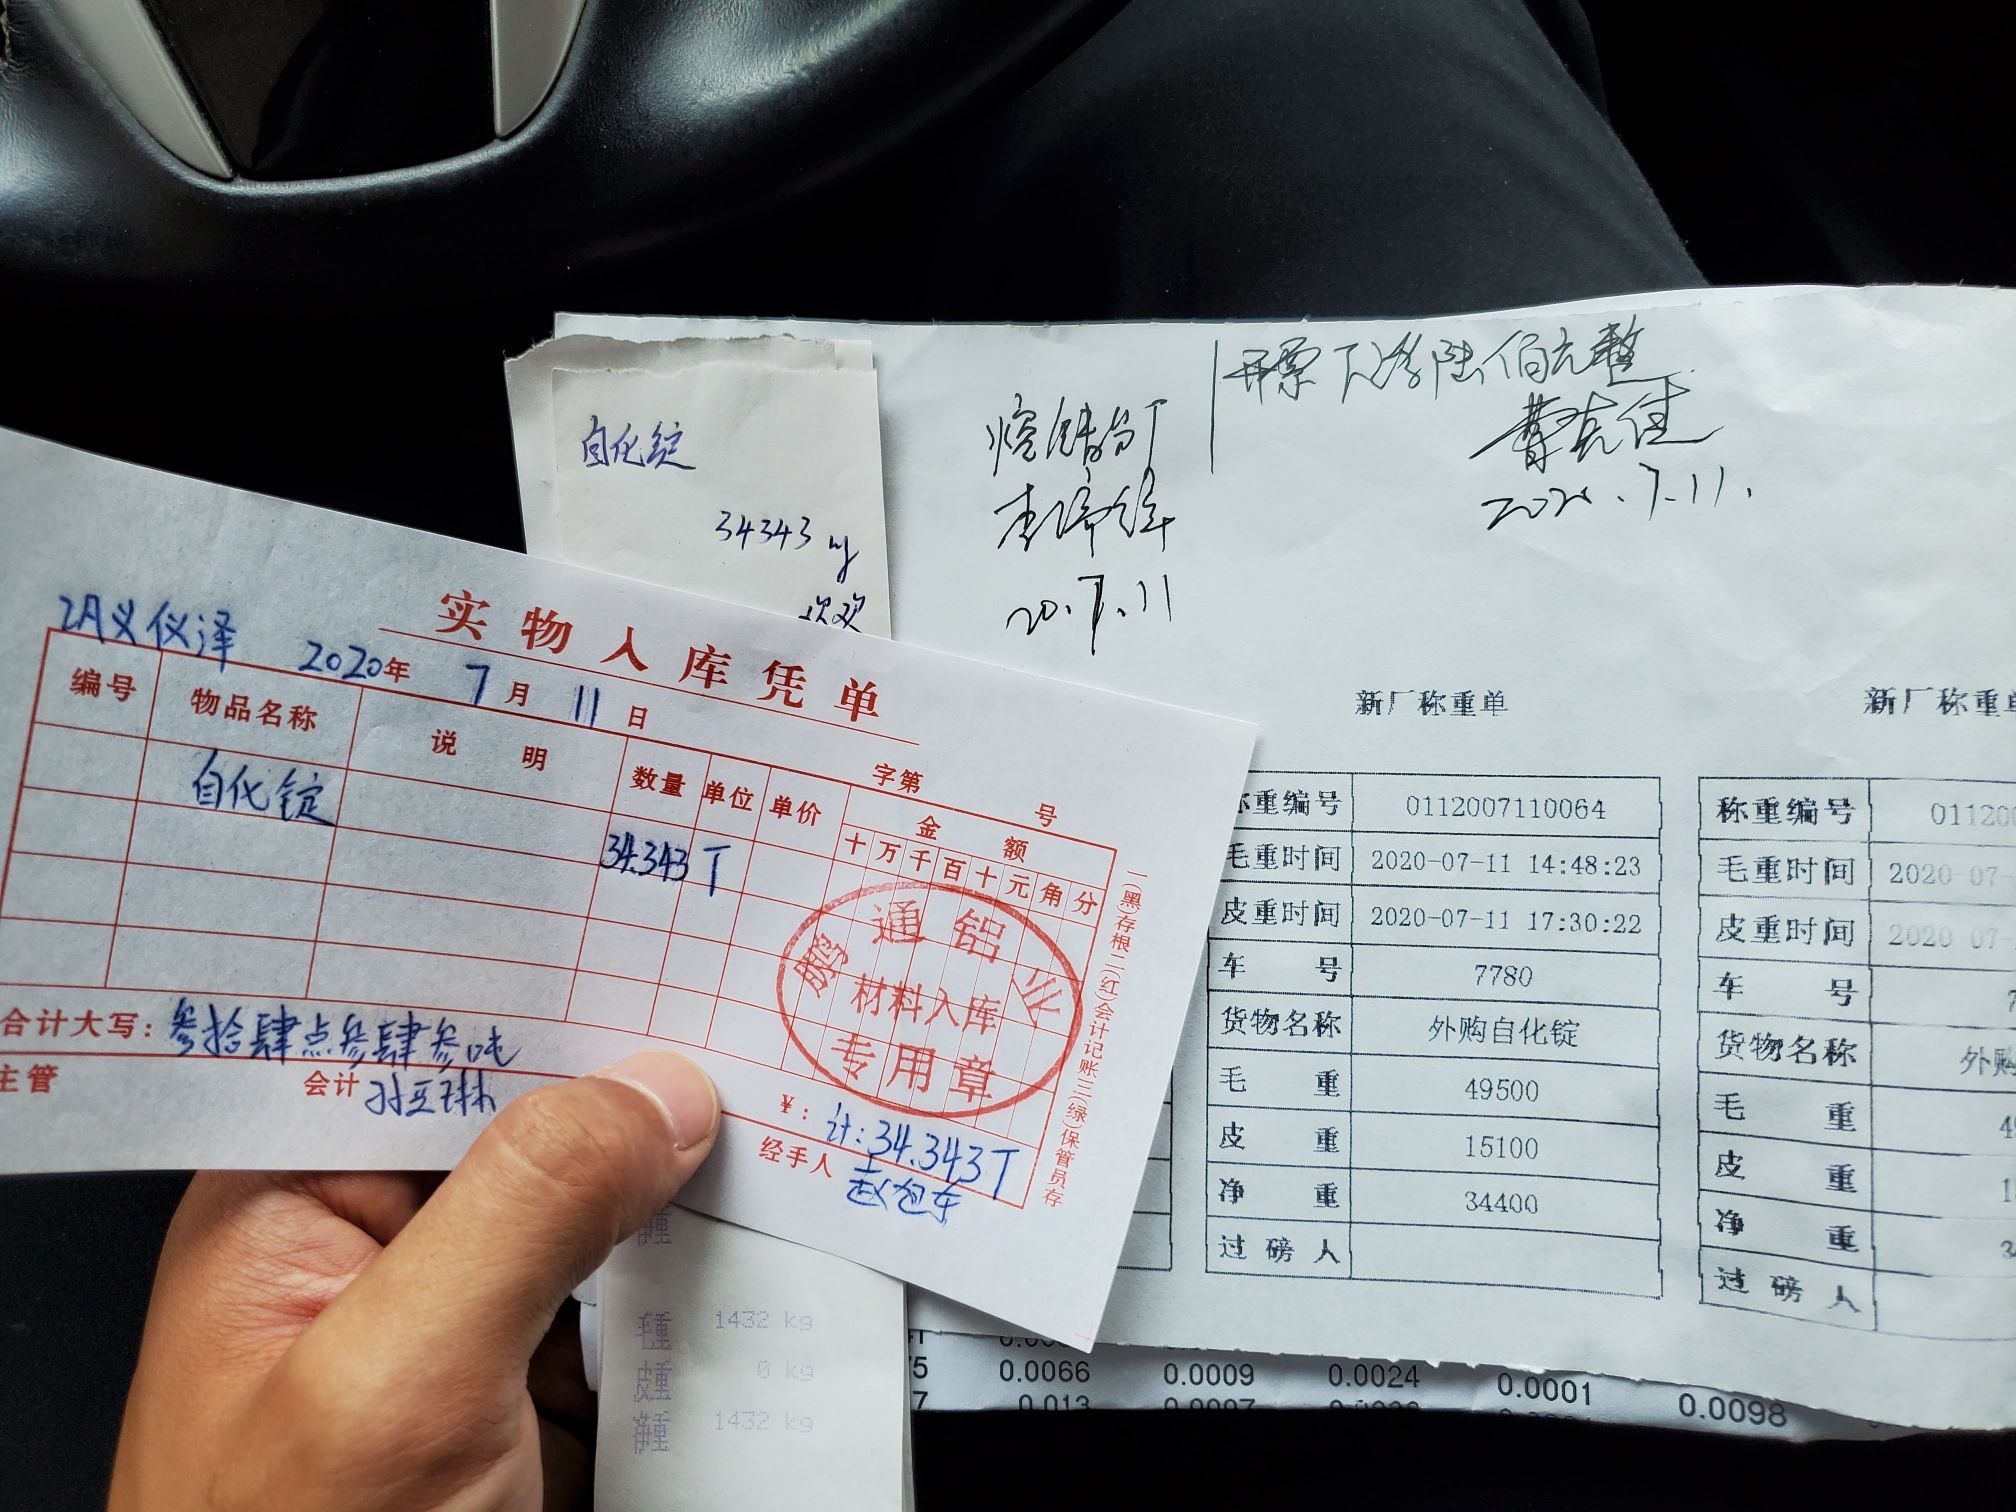 自化锭
34343 kg
欢欢
熔铸分厂
20.7.11
2020.7.11.
实物入库凭单
2020年 7月 11日
字第 号
编号 物品名称 说明 数量 单位 单价 金额
十 万 千 百 十 元 角 分
自化锭 34.343 T
鹏通铝业
材料入库
专用章
合计大写: 叁拾肆点叁肆叁吨
¥: 计: 34.343T
主管 会计 经手人
一(黑)存根二(红)会计记账三(绿)保管员存
新厂称重单
称重编号 0112007110064
毛重时间 2020-07-11 14:48:23
皮重时间 2020-07-11 17:30:22
车号 7780
货物名称 外购自化锭
毛重 49500
皮重 15100
净重 34400
过磅人
新厂称重单
称重编号 011200
毛重时间 2020-07-
皮重时间 2020-07-
车号 7
货物名称 外购
毛重 49
皮重 1
净重 34
过磅人
毛重 1432 kg
皮重 0 kg
净重 1432 kg
75 0.0066 0.0009 0.0024 0.0001 0.0098
7 0.013